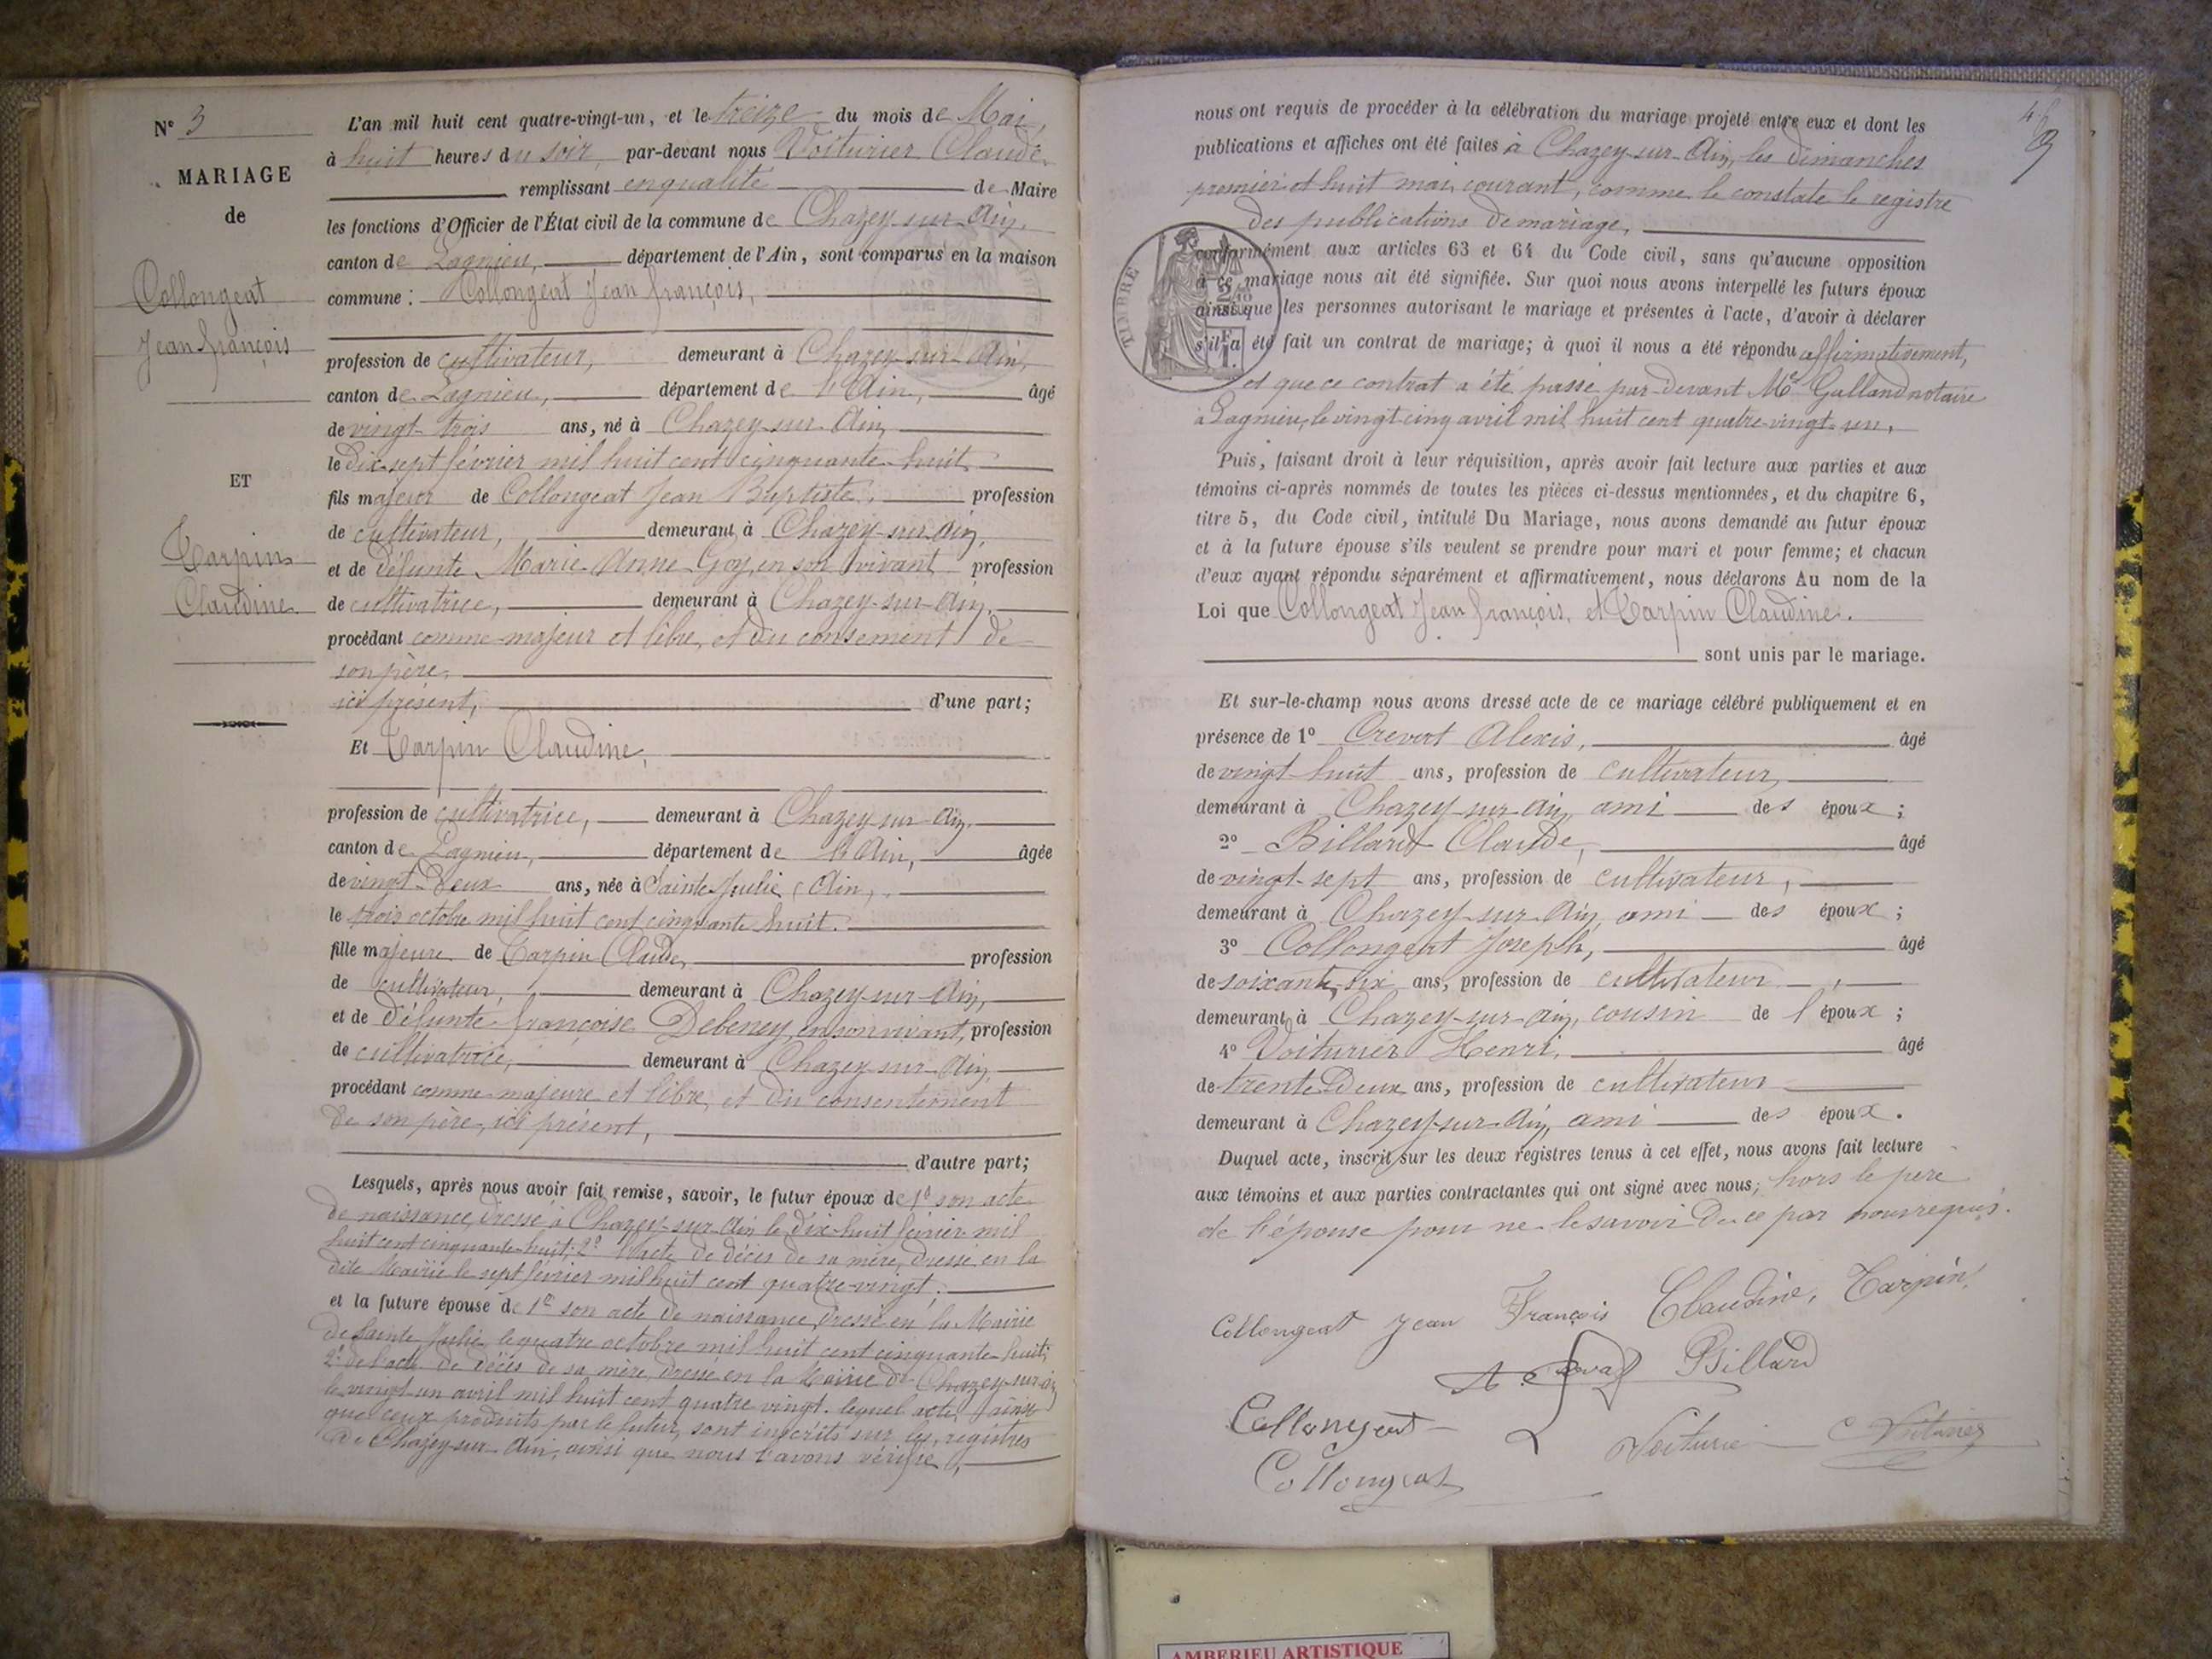 N° 3
MARIAGE
de
Collongeat
Jean François
ET
Carpin
Claudine.
L'an mil huit cent quatre-vingt-un, et le treize du mois de Mai,
à huit heures du soir, par-devant nous Voiturier Claude
remplissant en qualité de Maire
les fonctions d'Officier de l'État civil de la commune de Chazey-sur-Ain,
canton de Lagnieu, département de l'Ain, sont comparus en la maison
commune : Collongeat Jean François,
profession de cultivateur, demeurant à Chazey-sur-Ain,
canton de Lagnieu, département de l'Ain, âgé
de vingt-trois ans, né à Chazey-sur-Ain,
le dix-sept février mil huit cent cinquante-huit,
fils majeur de Collongeat Jean Baptiste, profession
de cultivateur, demeurant à Chazey-sur-Ain,
et de défunte Marie Anne Goy, en son vivant profession
de cultivatrice, demeurant à Chazey-sur-Ain,
procédant comme majeur et libre, et du consement de
son père,
ici présent, d'une part;
Et Carpin Claudine,
profession de cultivatrice, demeurant à Chazey-sur-Ain,
canton de Lagnieu, département de l'Ain, âgée
de vingt-deux ans, née à Sainte Julie (Ain),
le trois octobre mil huit cent cinquante huit.
fille majeure de Carpin Claude, profession
de cultivateur, demeurant à Chazey-sur-Ain,
et de défunte Françoise Debeney, en son vivant, profession
de cultivatrice, demeurant à Chazey-sur-Ain,
procédant comme majeure et libre, et du consentement
de son père, ici présent,
d'autre part;
Lesquels, après nous avoir fait remise, savoir, le futur époux de 1° son acte
de naissance, dressé à Chazey-sur-Ain le dix-huit février mil
huit cent cinquante-huit; 2° l'acte de décès de sa mère, dressé en la
dite Mairie le sept février mil huit cent quatre-vingt;
et la future épouse de 1° son acte de naissance, dressé en la Mairie
de Sainte Julie, le quatre octobre mil huit cent cinquante-huit;
2° de l'acte de décès de sa mère, dressé en la Mairie de Chazey-sur-Ain
le vingt-un avril mil huit cent quatre vingt. lequel acte, ainsi
que ceux produits par le futur, sont inscrits sur les registres
de Chazey-sur-Ain, ainsi que nous l'avons vérifié,
nous ont requis de procéder à la célébration du mariage projeté entre eux et dont les
publications et affiches ont été faites à Chazey-sur-Ain, les dimanches
premier et huit mai, courant, comme le constate le registre
des publications de mariage,
TIMBRE
conformément aux articles 63 et 64 du Code civil, sans qu'aucune opposition
à ce mariage nous ait été signifiée. Sur quoi nous avons interpellé les futurs époux
ainsi que les personnes autorisant le mariage et présentes à l'acte, d'avoir à déclarer
s'il a été fait un contrat de mariage; à quoi il nous a été répondu affirmativement,
et que ce contrat a été passé par-devant Me Gulland notaire
à Lagnieu, le vingt-cinq avril mil huit cent quatre-vingt-un,
Puis, faisant droit à leur réquisition, après avoir fait lecture aux parties et aux
témoins ci-après nommés de toutes les pièces ci-dessus mentionnées, et du chapitre 6,
titre 5, du Code civil, intitulé Du Mariage, nous avons demandé au futur époux
et à la future épouse s'ils veulent se prendre pour mari et pour femme; et chacun
d'eux ayant répondu séparément et affirmativement, nous déclarons Au nom de la
Loi que Collongeat Jean François, et Carpin Claudine.
sont unis par le mariage.
Et sur-le-champ nous avons dressé acte de ce mariage célébré publiquement et en
présence de 1° Crevert Alexis, âgé
de vingt-huit ans, profession de cultivateur,
demeurant à Chazey-sur-Ain, ami des époux ;
2° Billard Claude, âgé
de vingt-sept ans, profession de cultivateur,
demeurant à Chazey-sur-Ain, ami des époux ;
3° Collongeat Joseph, âgé
de soixante-six ans, profession de cultivateur,
demeurant à Chazey-sur-Ain, cousin de l'époux ;
4° Voiturier Henri, âgé
de trente-deux ans, profession de cultivateur
demeurant à Chazey-sur-Ain, ami des époux.
Duquel acte, inscrit sur les deux registres tenus à cet effet, nous avons fait lecture
aux témoins et aux parties contractantes qui ont signé avec nous; hors le père
de l'épouse pour ne le savoir de ce par nous requis.
Collongeat Jean François Claudine, Carpin,
Billard
Collongeat
Voiturier C Voiturier
Collongeat
AMBERIEU ARTISTIQUE